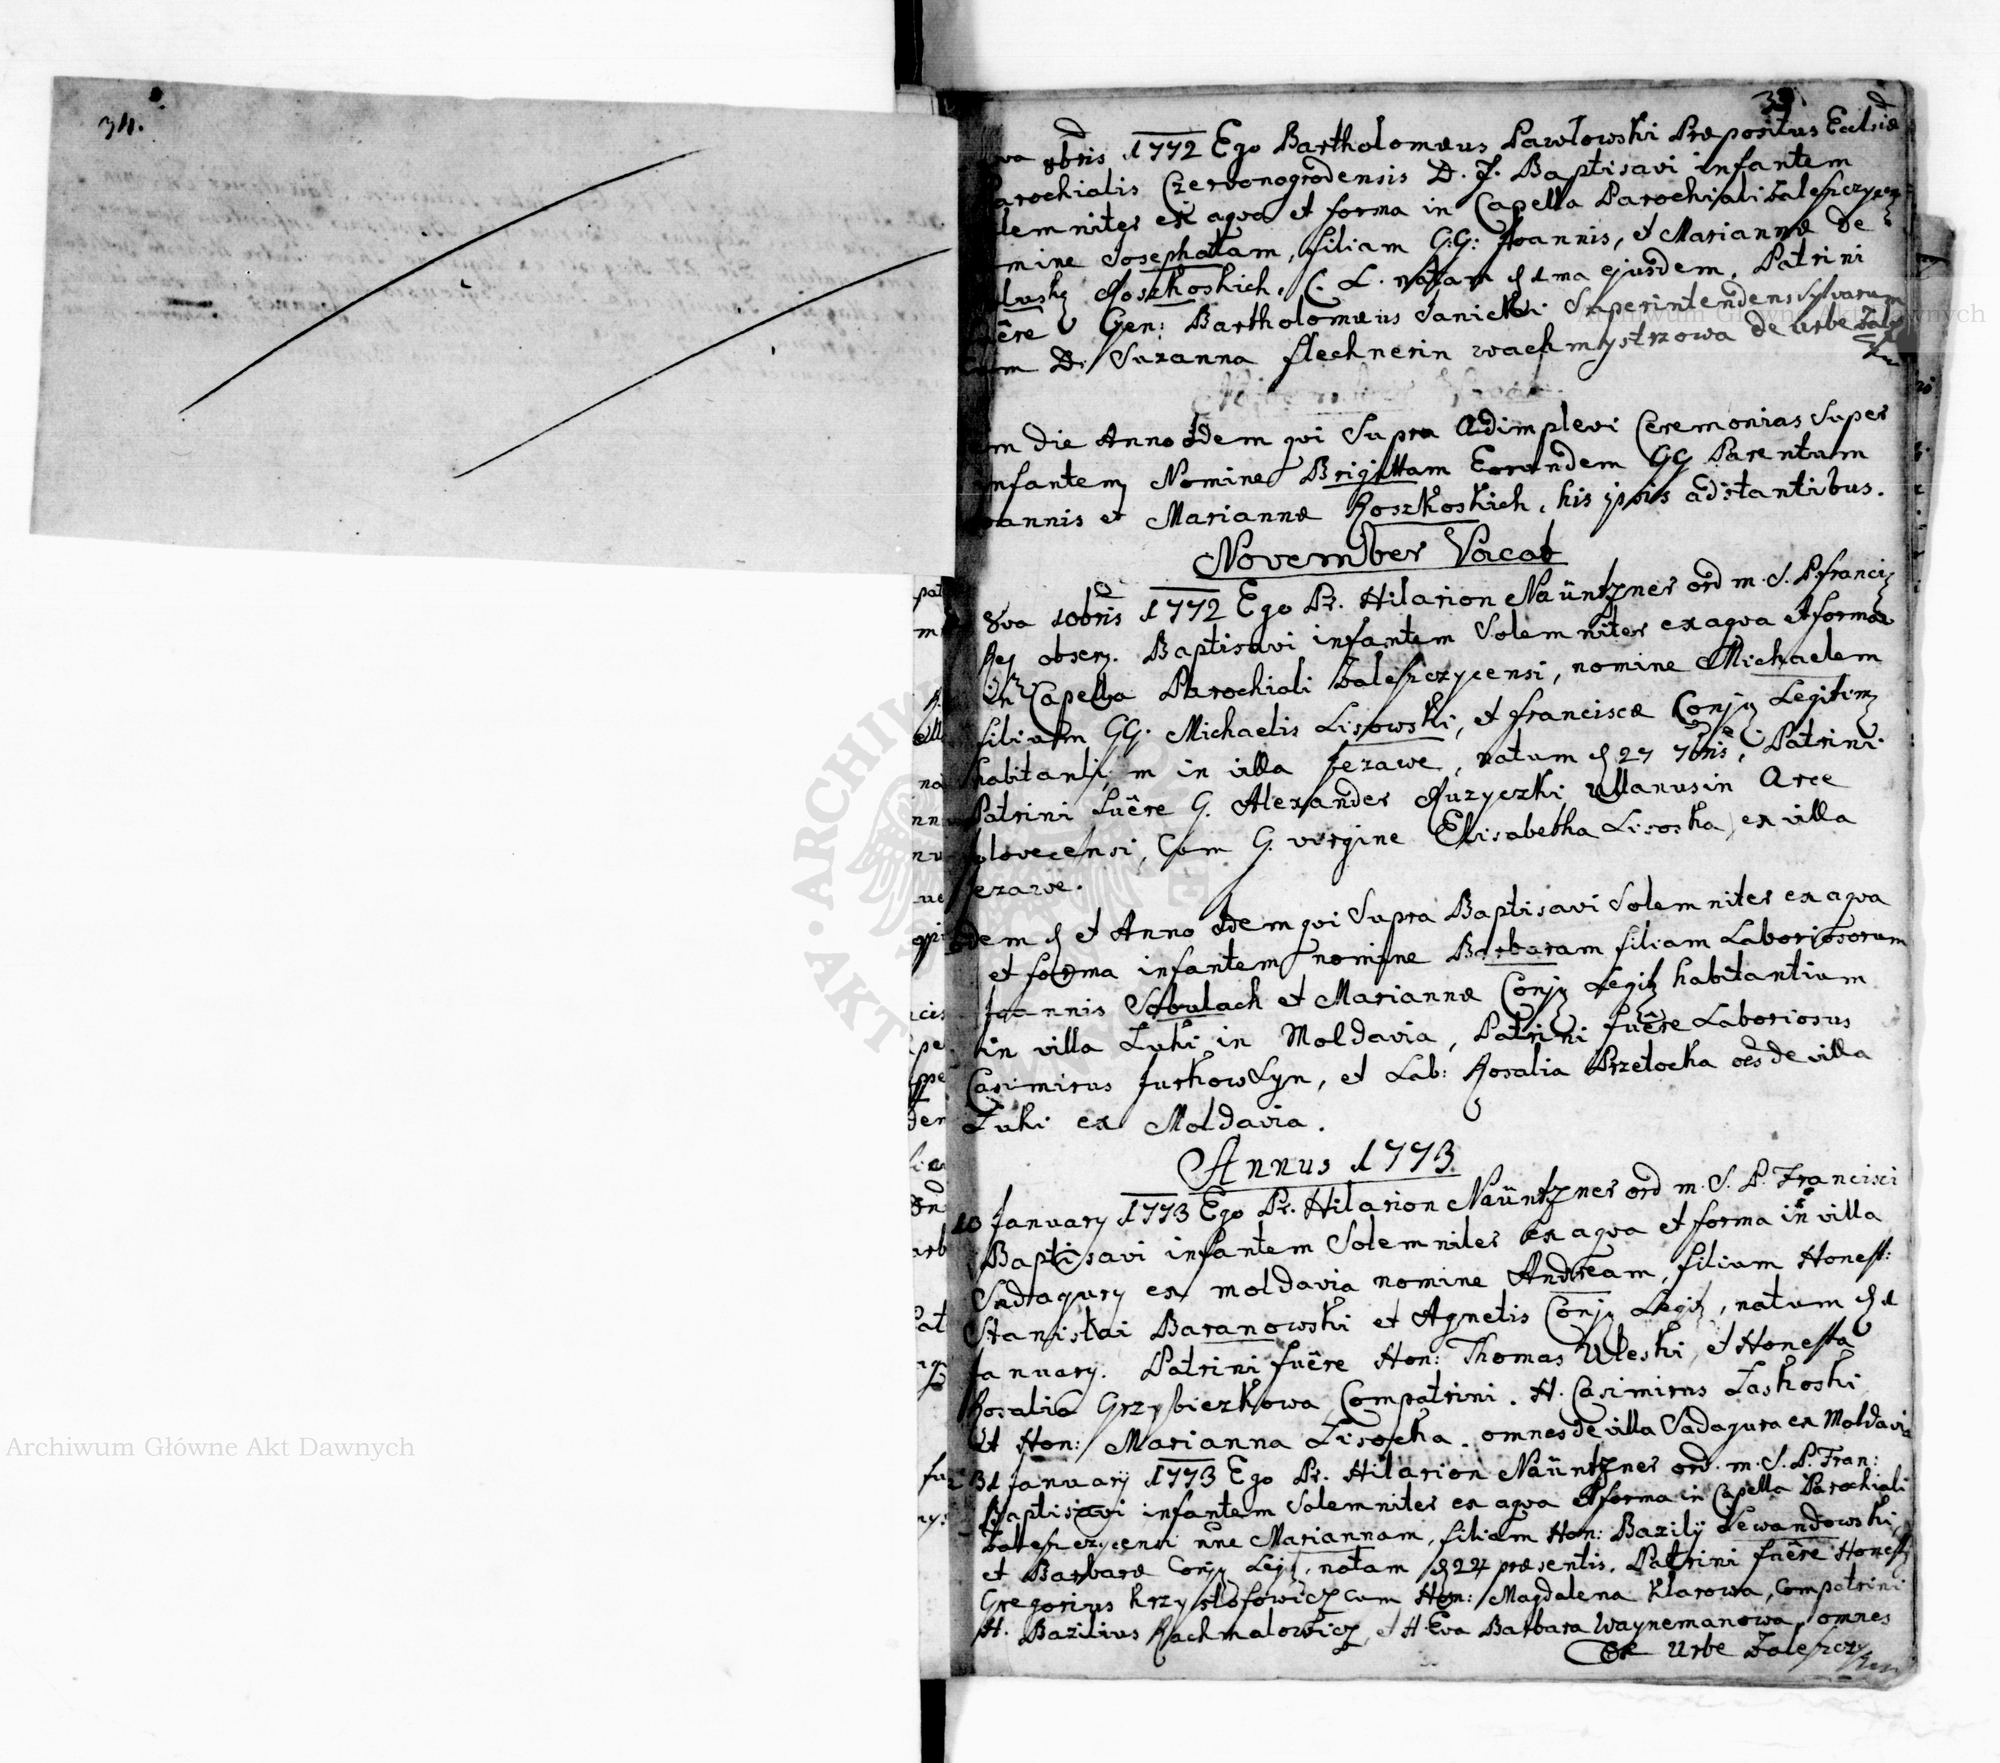 34.
8bris 1772 Ego Bartholomæus Pawłowski Præpositus Eccl̄siæ
Parochialis Czerwonogrodensis D. J. Baptisavi infantem
lemniter ex aqva et forma in Capella Parochiali Zaleszczycen:
mine Josephatam, filiam G:G: Joannis, et Mariannæ de
Roszkoskich. C. L. natam d 1ma ejusdem. Patrini
fuêre Gen: Bartholomæus Janicki Superintendens Sylvarum
cum D. Suzanna Flechnerin wachmystrzowa de Urbe Zalesz
Die Anno Eodem qvi Supra Adimplevi Ceremonias Super
infantem Nomine Brigittam Eorundem GG Parentum
Joannis et Mariannæ Roszkoskich, his ipsis adstantibus.
November Vacat
8va 10bris 1772 Ego Pr. Hilarion Naüntzner ord m. S. P. Franci
Reg observ. Baptisavi infantem Solemniter ex aqva et forma
in Capella Parochiali Zaleszczycensi, nomine Michaelem
filium GG. Michaelis Lisowski, et Franciscæ Conju Legitim
habitantium in villa Jezawe, natum d 27 7bris, Patrini
Patrini fuêre G. Alexander Ruzyczki Ullanus in Arce
cum G. virgine Elisabetha Lisoska, ex villa
Jezawe.
Eodem d et Anno Eodem qvi Supra Baptisavi Solemniter ex aqva
et forma infantem nomine Barbaram filiam Laboriosorum
Joannis Sobulach et Mariannæ Conju Legit habitantium
in villa Łuki in Moldavia, Patrini fuêre Laboriosus
Casimirus Jurkow Łyn, et Lab: Rosalia Przełocka oēs de villa
Łuki ex Moldavia.
Annus 1773
10 January 1773 Ego Pr. Hilarion Naüntzner ord m. S. P. Francisci
Baptisavi infantem Solemniter ex aqva et forma in villa
Sadagury ex moldavia nomine Andream, filium Honest:
Stanislai Baranowski et Agnetis Conju Legit, natum d 1
January. Patrini fuêre Hon: Thomas Uleski, et Honesta
Rosalia Grzybiezkowa Compatrini. H. Casimirus Laskoski
Et Hon: Marianna Lisocka. omnes de villa Sadagura ex Moldavia
31 January 1773 Ego Pr. Hilarion Naüntzner ord. m. S. P. Fran:
Baptisavi infantem Solemniter ex aqva et forma in Capella Parochiali
Zaleszczycensi nn̄e Mariannam, filiam Hon: Bazilÿ Lewandowski,
et Barbaræ Conju Legit, natam d 24 præsentis. Patrini fuêre Honest
Gregorius Krzysztofowicz cum Hon: Magdalena Klarowa, Compatrini
H. Bazilius Rachmalowicz, et H. Eva Barbara Waynemanowa, omnes
Ex Urbe Zaleszczy
Archiwum Główne Akt Dawnych
Archiwum Główne Akt Dawnych